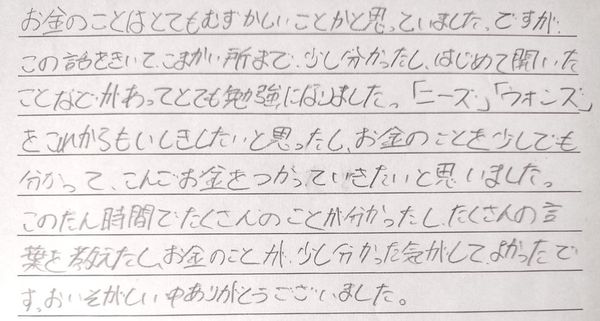 お金のことはとてもむずかしいことかと思っていました。ですが、
この話をきいて、こまかい所まで、少し分かったし、はじめて聞いた
ことなどがあってとても勉強になりました。「ニーズ」「ウォンズ」
をこれからもいしきしたいと思ったし、お金のことを少しでも
分かって、こんごお金をつかっていきたいと思いました。
このたん時間でたくさんのことが分かったし、たくさんの言
葉を教えたし、お金のことが、少し分かった気がして、よかったで
す。おいそがしい中ありがとうございました。